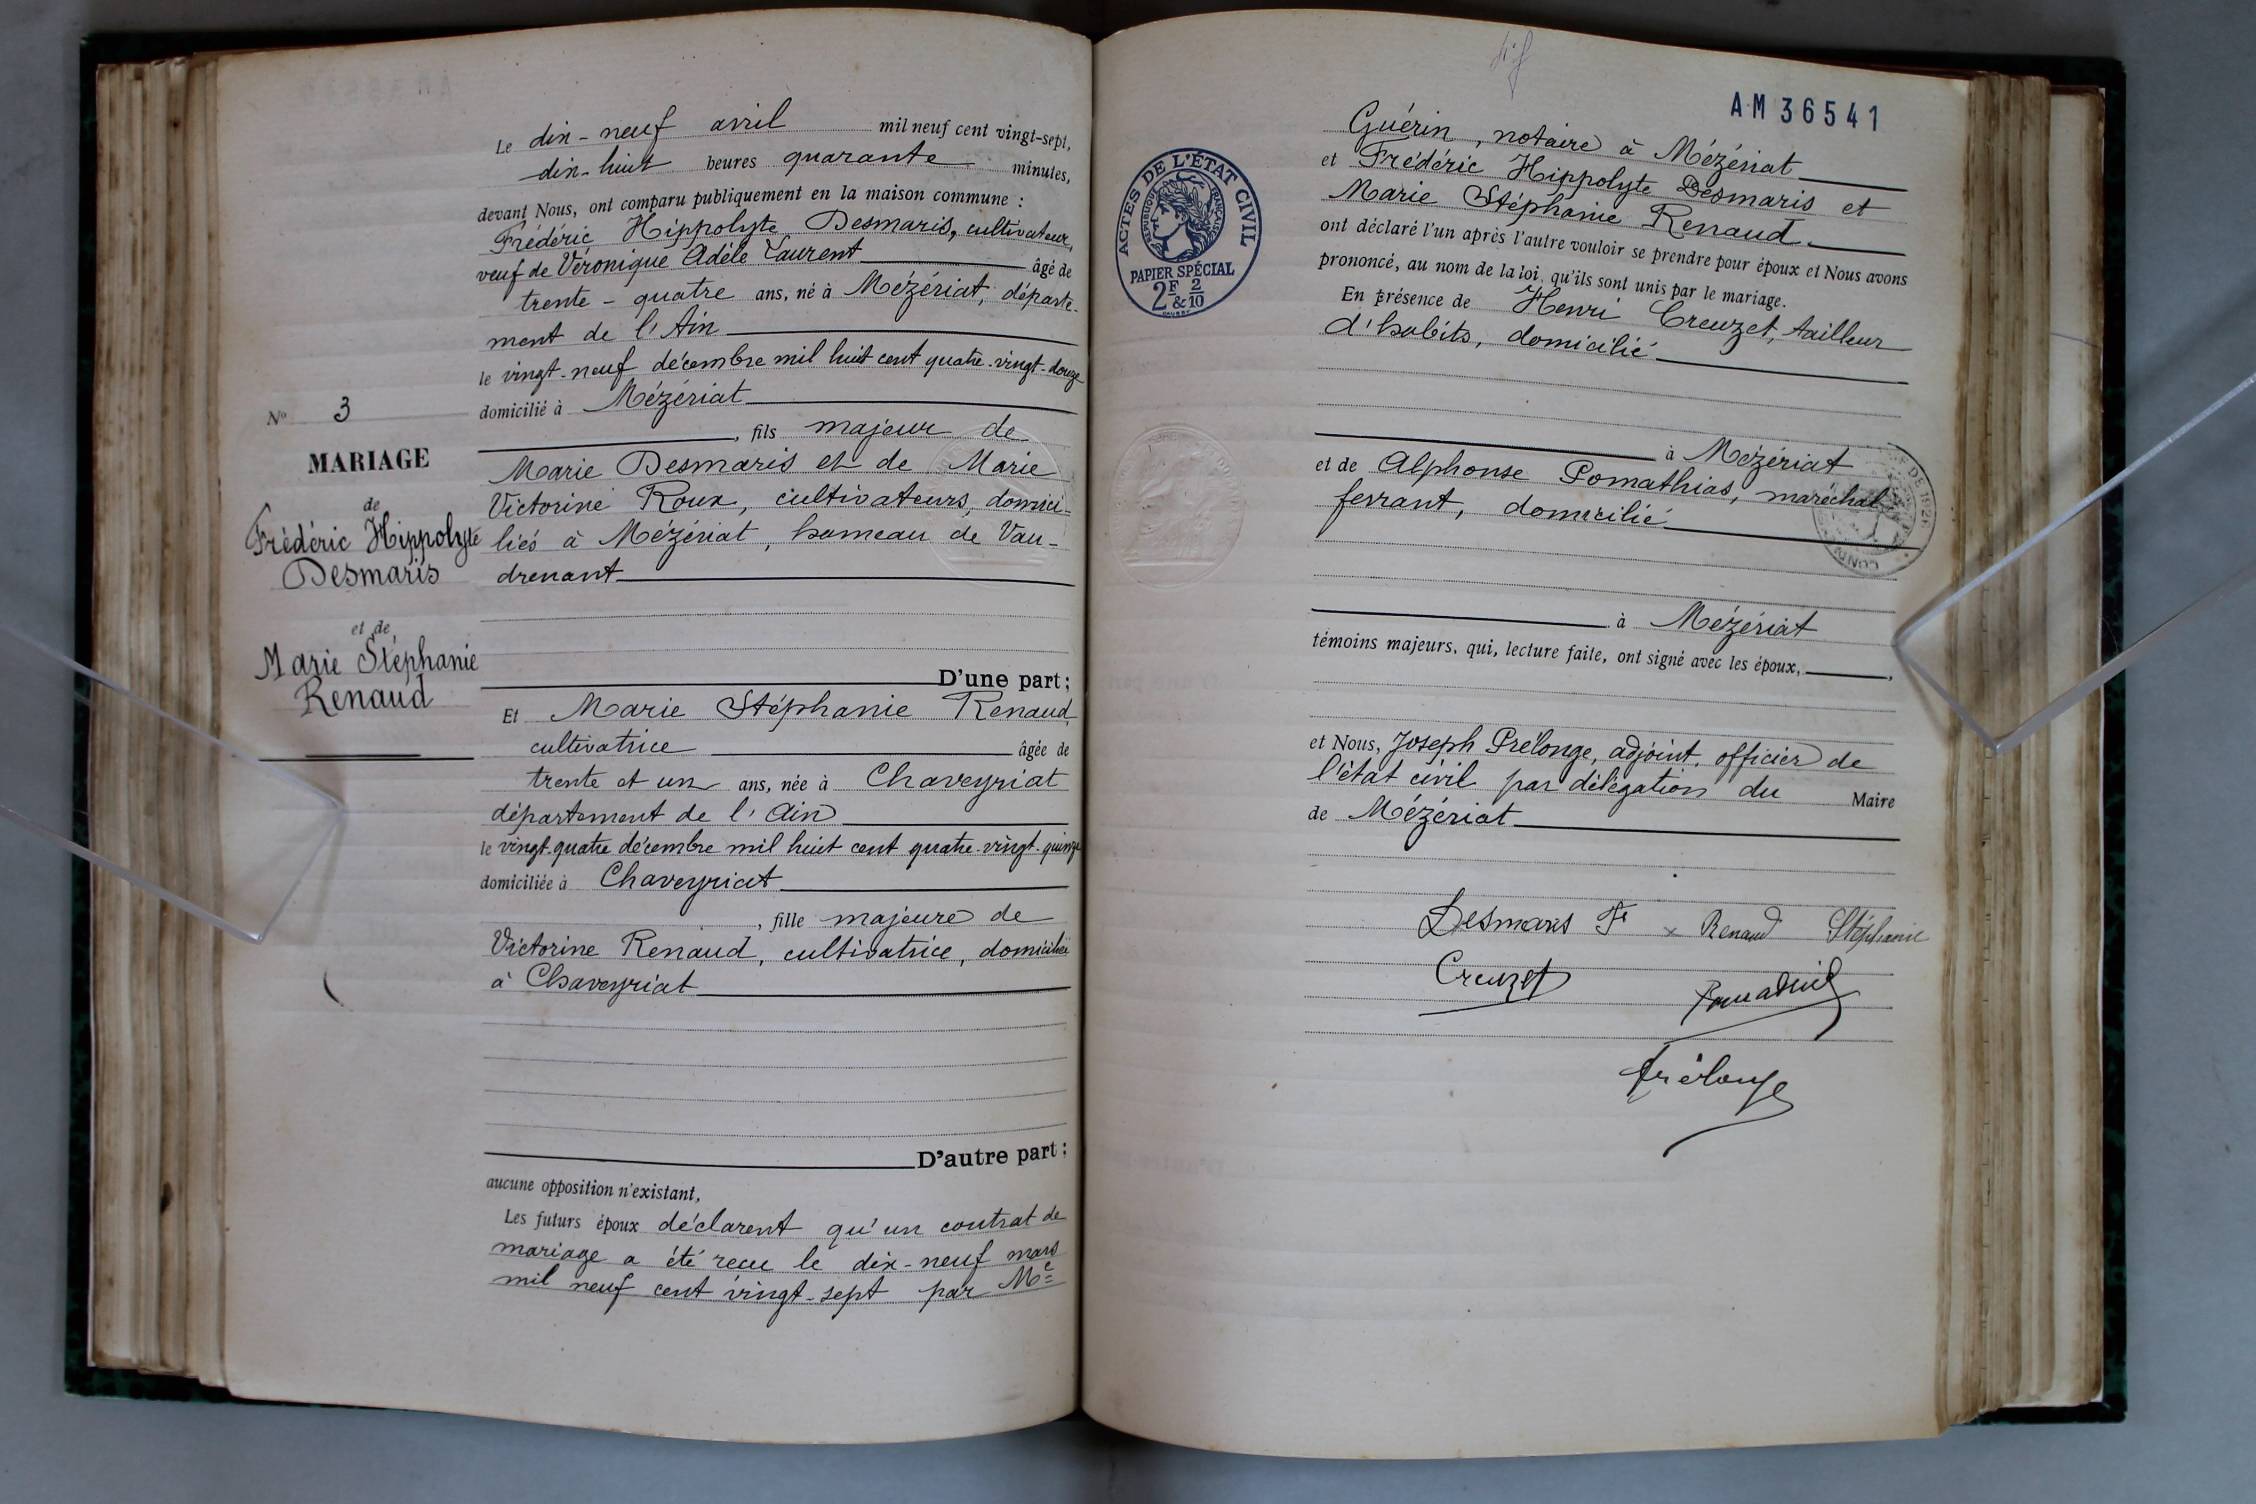 Le dix-neuf avril mil neuf cent vingt-sept,
dix-huit heures quarante minutes,
devant Nous, ont comparu publiquement en la maison commune :
Frédéric Hippolyte Desmaris, cultivateur,
veuf de Véronique Adèle Laurent âgé de
trente-quatre ans, né à Mézériat, départe-
ment de l'Ain
le vingt-neuf décembre mil huit cent quatre-vingt-douze
domicilié à Mézériat
, fils majeur de
Marie Desmaris et de Marie
Victorine Roux, cultivateurs, domici-
liés à Mézériat, hameau de Vau-
drenant
D'une part ;
Et Marie Stéphanie Renaud,
cultivatrice âgée de
trente et un ans, née à Chaveyriat
département de l'Ain
le vingt-quatre décembre mil huit cent quatre-vingt-quinze
domiciliée à Chaveyriat
, fille majeure de
Victorine Renaud, cultivatrice, domiciliée
à Chaveyriat
D'autre part ;
aucune opposition n'existant,
Les futurs époux déclarent qu'un contrat de
mariage a été reçu le dix-neuf mars
mil neuf cent vingt-sept par Me
N° 3
MARIAGE
de
Frédéric Hippolyte
Desmaris
et de
Marie Stéphanie
Renaud
AM 36541
ACTES DE L'ÉTAT CIVIL
RÉPUBLIQUE FRANÇAISE
PAPIER SPÉCIAL
2F & 2/10
Guérin, notaire à Mézériat
et Frédéric Hippolyte Desmaris et
Marie Stéphanie Renaud
ont déclaré l'un après l'autre vouloir se prendre pour époux et Nous avons
prononcé, au nom de la loi, qu'ils sont unis par le mariage.
En présence de Henri Creuzet, tailleur
d'habits, domicilié
à Mézériat
et de Alphonse Pomathias, maréchal-
ferrant, domicilié
à Mézériat
témoins majeurs, qui, lecture faite, ont signé avec les époux,
et Nous, Joseph Prélonge, adjoint, officier de
l'état civil par délégation du Maire
de Mézériat
Desmaris Fc Renaud Stéphanie
Creuzet
Prélonge